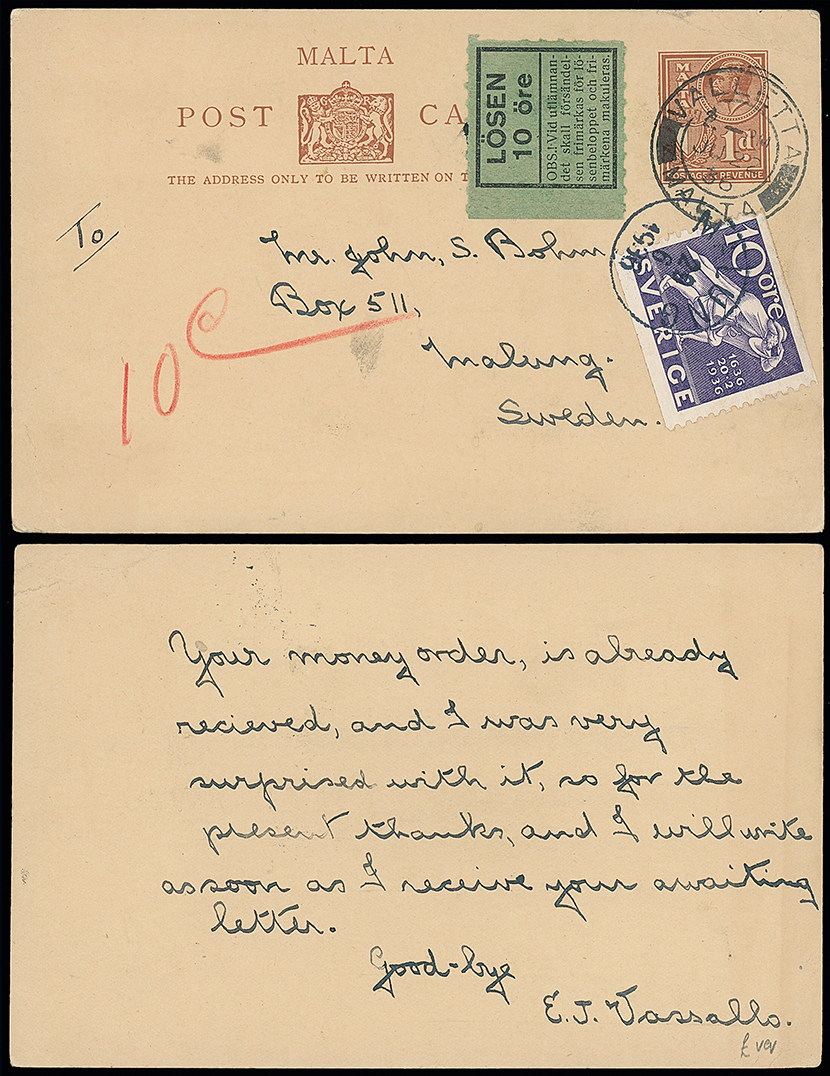 MALTA
POST
CA
THE ADDRESS ONLY TO BE WRITTEN ON T
LÖSEN
10 öre
OBS.! Vid utlämnan-
det skall försändel-
sen frimärkas för lö-
senbeloppet och fri-
märkena makuleras.
MA
1d.
POSTAGE & REVENUE
VALLETTA
MALTA
36
To
Mr. John, S. Bohm
Box 511,
Malung.
Sweden.
10 c
1936
10 öre
SVERIGE
1636
20 2
1936
Your money order, is already
recieved, and I was very
surprised with it, so for the
present thanks, and I will write
as soon as I receive your awaiting
letter.
Good-bye
E.J. Vassallo.